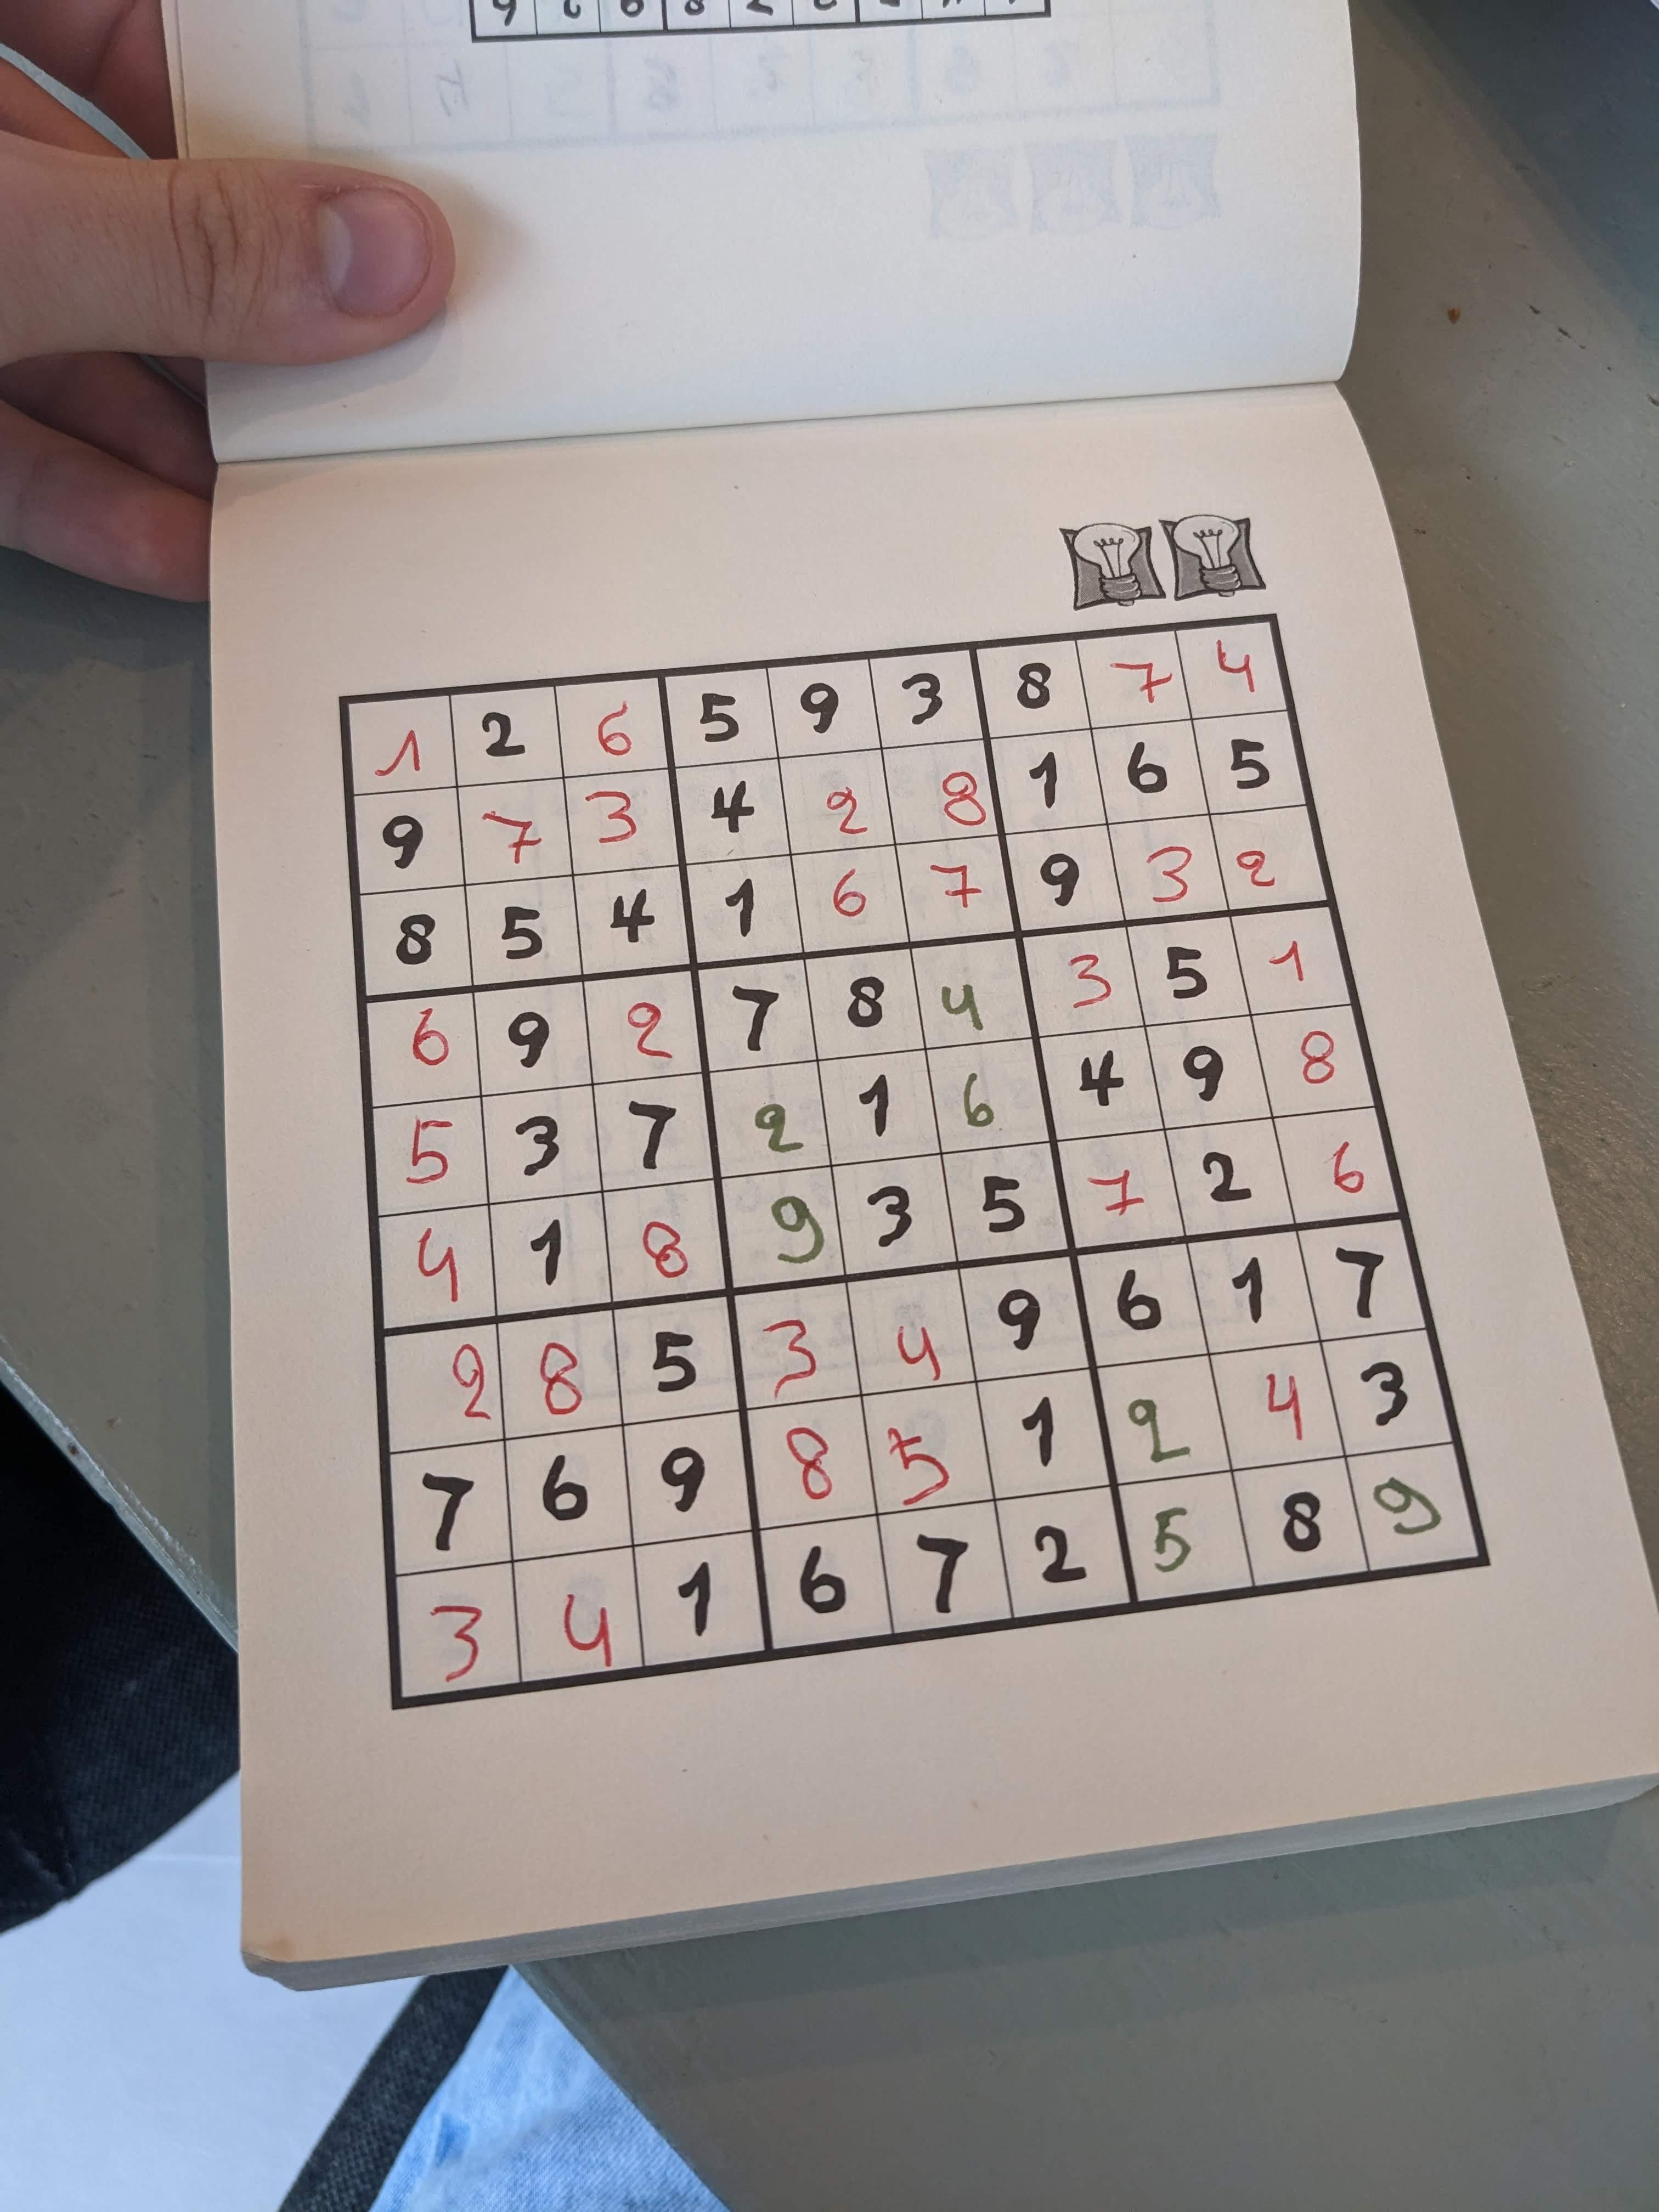 1 2 6 5 9 3 8 7 4
9 7 3 4 2 8 1 6 5
8 5 4 1 6 7 9 3 2
6 9 2 7 8 4 3 5 1
5 3 7 2 1 6 4 9 8
4 1 8 9 3 5 7 2 6
2 8 5 3 4 9 6 1 7
7 6 9 8 5 1 2 4 3
3 4 1 6 7 2 5 8 9